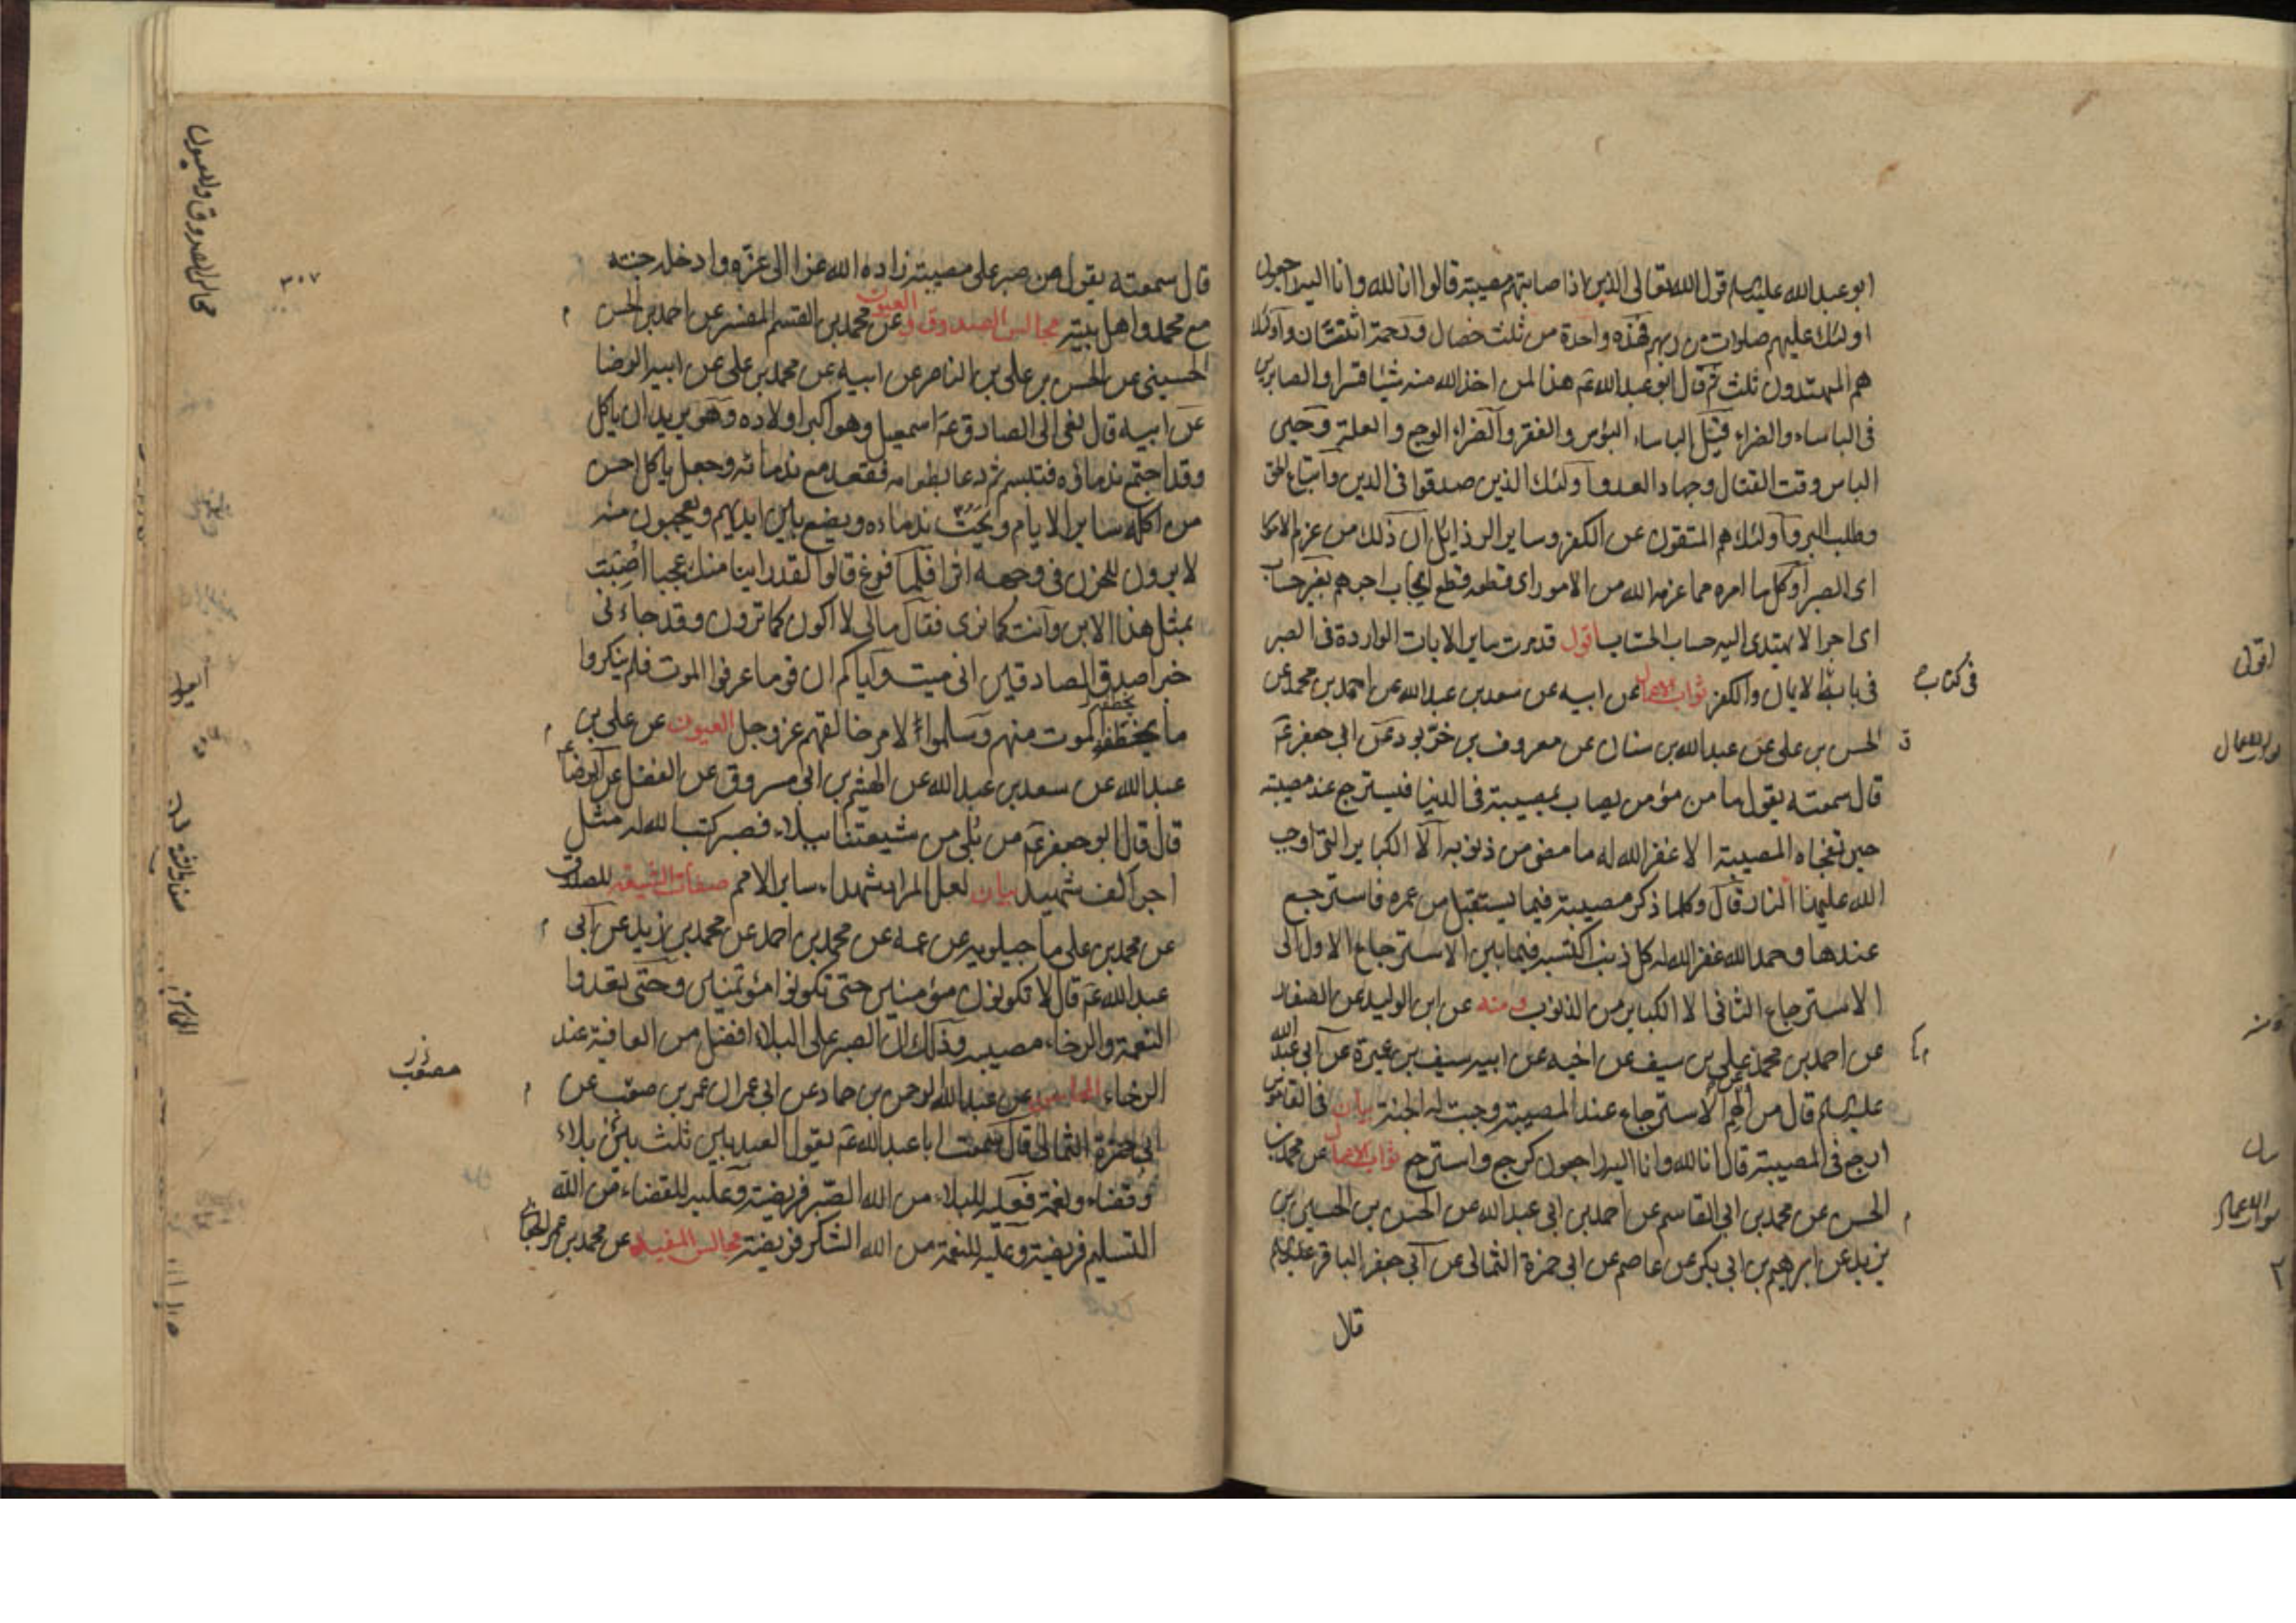 ابو عبد الله عليه السلم قول الله تعالى الذين اذا صابتهم مصيبة قالوا انا لله وانا اليه راجعون
اولئك عليهم صلوات من ربهم فهذه واحدة من ثلث خصال ورحمة اثنتان واولئك
هم المهتدون ثلث ثم قال ابو عبد الله عم هذا لمن اخذ الله منه شيئا قسرا والصابرين
فى الباساء والضراء قيل الباساء البؤس والفقر والضراء الوجع والعلة وحين
الباس وقت القتال وجهاد العدو اولئك الذين صدقوا فى الدين واتباع الحق
وطلب البر واولئك هم المتقون عن الكفر وساير الرذايل ان ذلك من عزم الامور
اى الصبر او كل ما امره مما عزمه الله من الامور اى قطعه قطع ايجاب اجرهم بغير حساب
اى اجرا لا يهتدى اليه حساب الحساب اقول قد مرت ساير الايات الواردة فى الصبر
فى باب الايمان والكفر ثواب الاعمال عن ابيه عن سعد بن عبد الله عن احمد بن محمد عن
فى كتاب
الحسن بن على عن عبد الله بن سنان عن معروف بن خربود عن ابى جعفر عم
قال سمعته يقول ما من مؤمن يصاب بمصيبة فى الدنيا فيسترجع عند مصيبته
حين تفجاه المصيبة الا غفر الله له ما مضى من ذنوبه الا الكباير التى اوجب
الله عليها النار قال وكلما ذكر مصيبة فيما يستقبل من عمره فاسترجع
عندها وحمد الله غفر الله له كل ذنب اكتسبه فيما بين الاسترجاع الاول الى
الاسترجاع الثانى الا الكباير من الذنوب ومنه عن ابن الوليد عن الصفار
عن احمد بن محمد عن على بن سيف عن اخيه عن ابيه سيف بن عميرة عن ابى عبد الله
عليه السلم قال من الهم الاسترجاع عند المصيبة وجبت له الجنة بيان فى القاموس
ارجع فى المصيبة قال انا لله وانا اليه راجعون كرجع واسترجع ثواب الاعمال عن محمد بن
الحسن عن محمد بن ابى القاسم عن احمد بن ابى عبد الله عن الحسن بن الحسين بن
يزيد عن ابرهيم بن ابى بكر عن عاصم عن ابى حمزة الثمالى عن ابى جعفر الباقر عليه السلم
قال
اقول
ثواب الاعمال
ومنه
بيان
ثواب الاعمال
٣٠٧
قال سمعته يقول من صبر على مصيبة زاده الله عزا الى عزه وادخله جنته
مع محمد واهل بيته مجالس الصدوق والعيون عن محمد بن القسم المفسر عن احمد بن الحسن
الحسينى عن الحسن بن على بن الناصر عن ابيه عن محمد بن على عن ابيه الرضا
عن ابيه قال نعى الى الصادق عم اسمعيل وهو اكبر اولاده وهو يريد ان ياكل
وقد اجتمع ندماؤه فتبسم ثم دعا بطعامه فقعد مع ندمائه وجعل ياكل احسن
من اكله ساير الايام ويحث ندماءه ويضع بين ايديهم ويعجبون منه
لا يرون للحزن فى وجهه اثرا فلما فرغ قالوا لقد راينا منك عجبا اصبت
بمثل هذا الابن وانت كما نرى فقال مالى لا اكون كما ترون وقد جاءنى
خبر اصدق الصادقين انى ميت واياكم ان قوما عرفوا الموت فلم ينكروا
ما يخطفه الموت منهم وسلموا لامر خالقهم عز وجل العيون عن على بن
عبد الله عن سعد بن عبد الله عن الهيثم بن ابى مسروق عن الفضل عن الرضا عم
قال قال ابو جعفر عم من بلى من شيعتنا ببلاء فصبر كتب الله له مثل
اجر الف شهيد بيان لعل المراد شهداء ساير الامم صفات الشيعه للصدوق
عن محمد بن على ماجيلويه عن عمه عن محمد بن احمد عن محمد بن زيد عن ابى
عبد الله عم قال لا تكونون مؤمنين حتى تكونوا مؤتمنين وحتى تعدوا
النعمة والرخاء مصيبه وذلك ان الصبر على البلاء افضل من العافية عند
الرخاء المحاسن عن عبد الرحمن بن حماد عن ابى عمران عمر بن مصعب عن
ابى حمزة الثمالى قال سمعت ابا عبد الله عم يقول العبد بين ثلث بين بلاء
وقضاء ونعمة فعليه للبلاء من الله الصبر فريضة وعليه للقضاء من الله
التسليم فريضة وعليه للنعمة من الله الشكر فريضة مجالس المفيد عن محمد بن عمر الجعابى
مصعب
مجالس الصدوق والعيون
العيون
صفات الشيعه
المحاسن